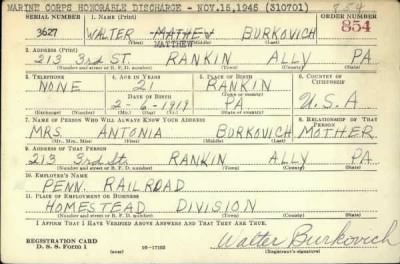 MARINE CORPS HONORABLE DISCHARGE - NOV. 15, 1945 (310701) 854
SERIAL NUMBER 1. Name (Print) ORDER NUMBER
3627 WALTER MATHEW BURKOVICH 854
(First) (Middle) (Last)
MATTHEW
2. Address (Print)
213 3rd ST. RANKIN ALLY PA
(Number and street or R. F. D. number) (Town) (County) (State)
3. Telephone 4. Age in Years 5. Place of Birth 6. Country of Citizenship
NONE 21 RANKIN
Date of Birth (Town or county)
2-6-1919 PA U.S.A
(Mo.) (Day) (Yr.) (State or country)
7. Name of Person Who Will Always Know Your Address 8. Relationship of That Person
MRS. ANTONIA BURKOVICH MOTHER
(Mr., Mrs., Miss) (First) (Middle) (Last)
9. Address of That Person
213 3rd St. RANKIN ALLY PA
(Number and street or R. F. D. number) (Town) (County) (State)
10. Employer's Name
PENN. RAILROAD
11. Place of Employment or Business
HOMESTEAD DIVISION
(Number and street or R. F. D. number) (Town) (County) (State)
I Affirm That I Have Verified Above Answers and That They Are True.
REGISTRATION CARD
D. S. S. Form 1 (over) 16-17105 Walter Burkovich
(Registrant's signature)